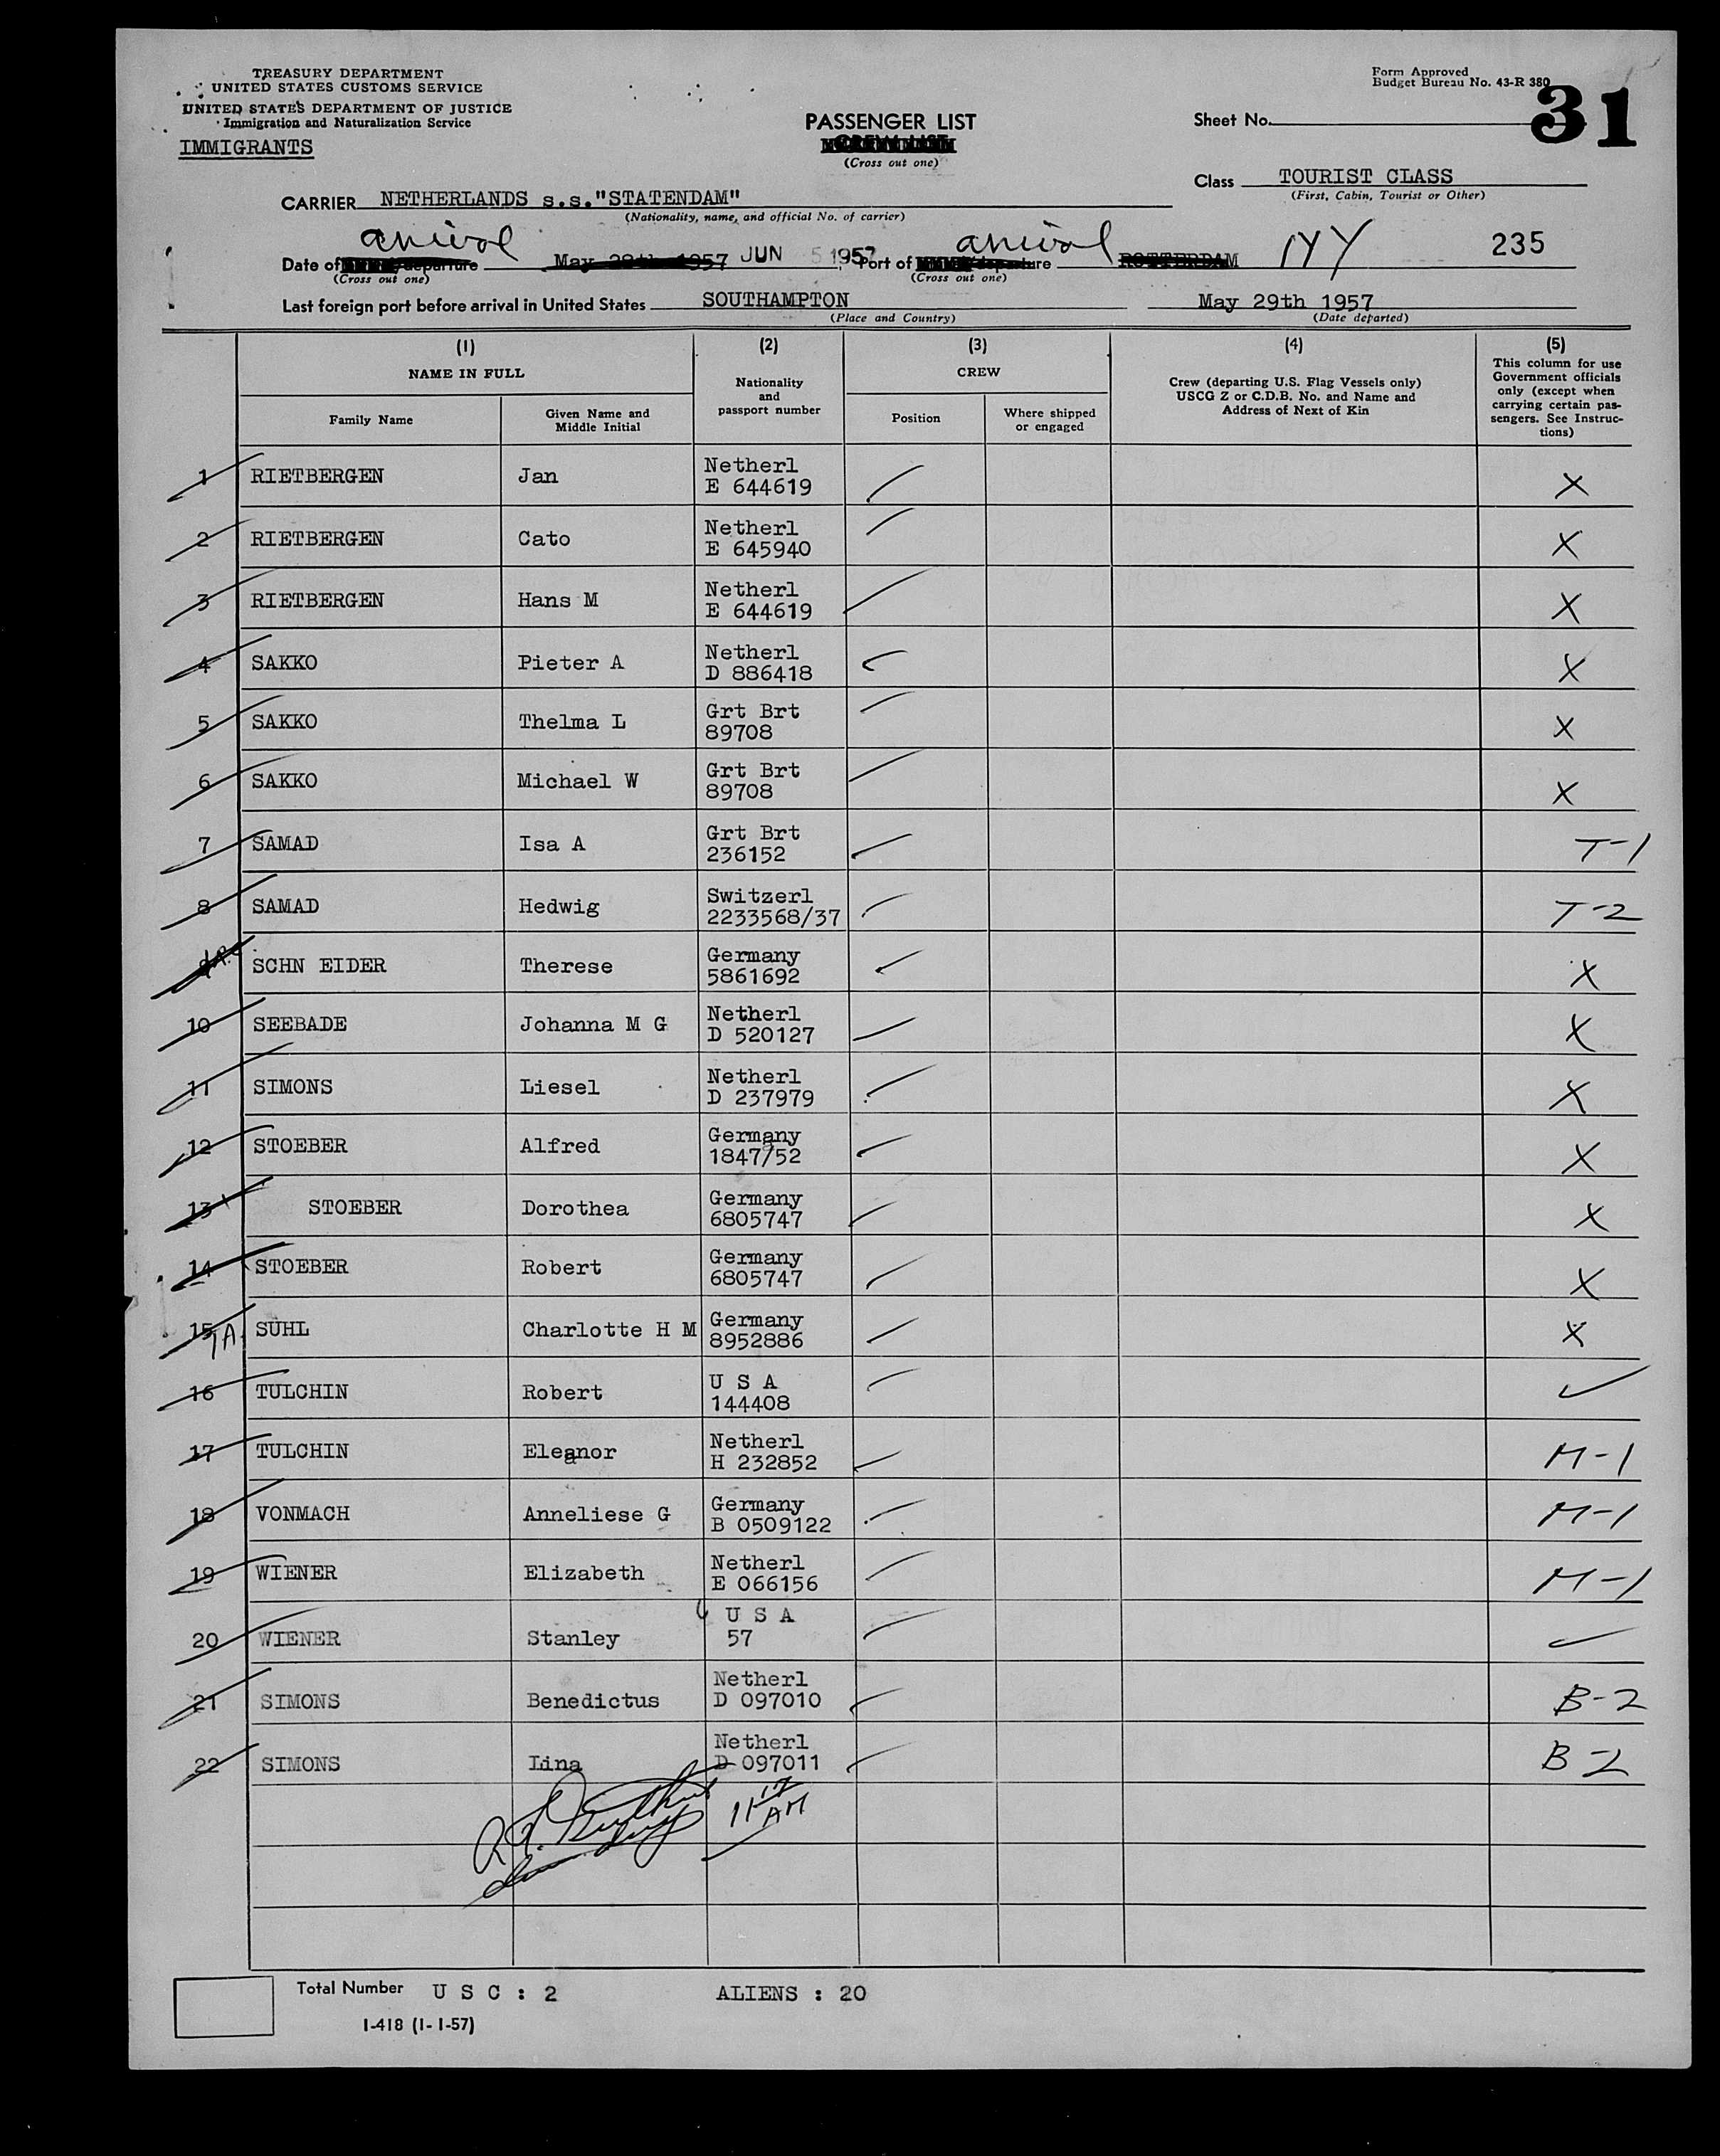 TREASURY DEPARTMENT
UNITED STATES CUSTOMS SERVICE
UNITED STATES DEPARTMENT OF JUSTICE
Immigration and Naturalization Service
IMMIGRANTS
PASSENGER LIST
CREW LIST
(Cross out one)
Form Approved
Budget Bureau No. 43-R 380
Sheet No. 31
Class TOURIST CLASS
(First, Cabin, Tourist or Other)
CARRIER NETHERLANDS s.s."STATENDAM"
(Nationality, name, and official No. of carrier)
arrival arrival
Date of departure May 28th 1957 JUN 5 1957, Port of departure ROTTERDAM NYY 235
(Cross out one) (Cross out one)
Last foreign port before arrival in United States SOUTHAMPTON May 29th 1957
(Place and Country) (Date departed)
(1) (2) (3) (4) (5)
NAME IN FULL
Family Name
Given Name and
Middle Initial
Nationality
and
passport number
CREW
Position
Where shipped
or engaged
Crew (departing U.S. Flag Vessels only)
USCG Z or C.D.B. No. and Name and
Address of Next of Kin
This column for use
Government officials
only (except when
carrying certain pas-
sengers. See Instruc-
tions)
1 RIETBERGEN Jan Netherl X
E 644619
2 RIETBERGEN Cato Netherl X
E 645940
3 RIETBERGEN Hans M Netherl X
E 644619
4 SAKKO Pieter A Netherl X
D 886418
5 SAKKO Thelma L Grt Brt X
89708
6 SAKKO Michael W Grt Brt X
89708
7 SAMAD Isa A Grt Brt T-1
236152
8 SAMAD Hedwig Switzerl T-2
2233568/37
9 SCHN EIDER Therese Germany X
5861692
10 SEEBADE Johanna M G Netherl X
D 520127
11 SIMONS Liesel Netherl X
D 237979
12 STOEBER Alfred Germany X
1847/52
13 STOEBER Dorothea Germany X
6805747
14 STOEBER Robert Germany X
6805747
15 SUHL Charlotte H M Germany X
8952886
16 TULCHIN Robert U S A
144408
17 TULCHIN Eleanor Netherl M-1
H 232852
18 VONMACH Anneliese G Germany M-1
B 0509122
19 WIENER Elizabeth Netherl M-1
E 066156
20 WIENER Stanley U S A
57
21 SIMONS Benedictus Netherl B-2
D 097010
22 SIMONS Lina Netherl B-2
D 097011
11 17 AM
Total Number U S C : 2 ALIENS : 20
I-418 (1-1-57)